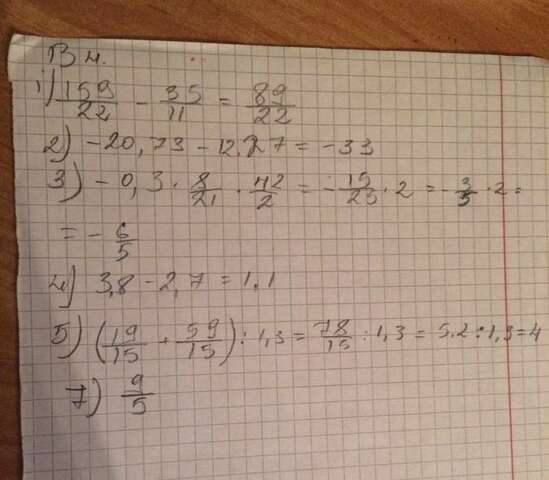 В 4.
1) 159/22 - 35/11 = 89/22
2) -20,73 - 12,27 = -33
3) -0,3 · 8/21 · 42/2 = -15/25 · 2 = -3/5 · 2 =
= -6/5
4) 3,8 - 2,7 = 1,1
5) (19/15 + 59/15) : 1,3 = 78/15 : 1,3 = 5,2 : 1,3 = 4
7) 9/5